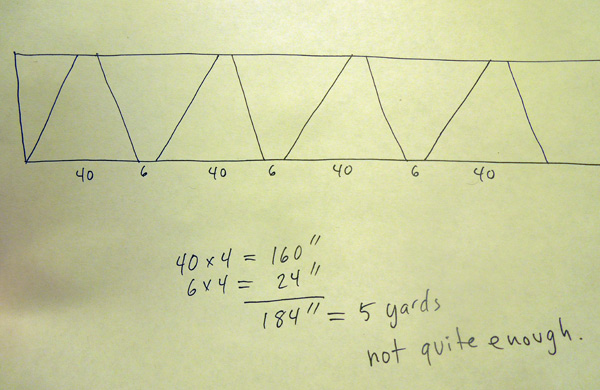 40 6 40 6 40 6 40
40 x 4 = 160"
6 x 4 = 24"
184" = 5 yards
not quite enough.